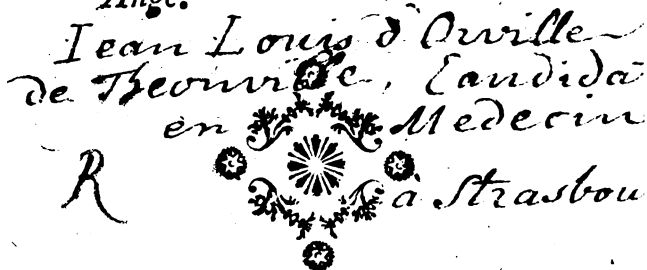 Iean Louis d'Orville
de Theonville, Candida
en Medecin
R
à Strasbou